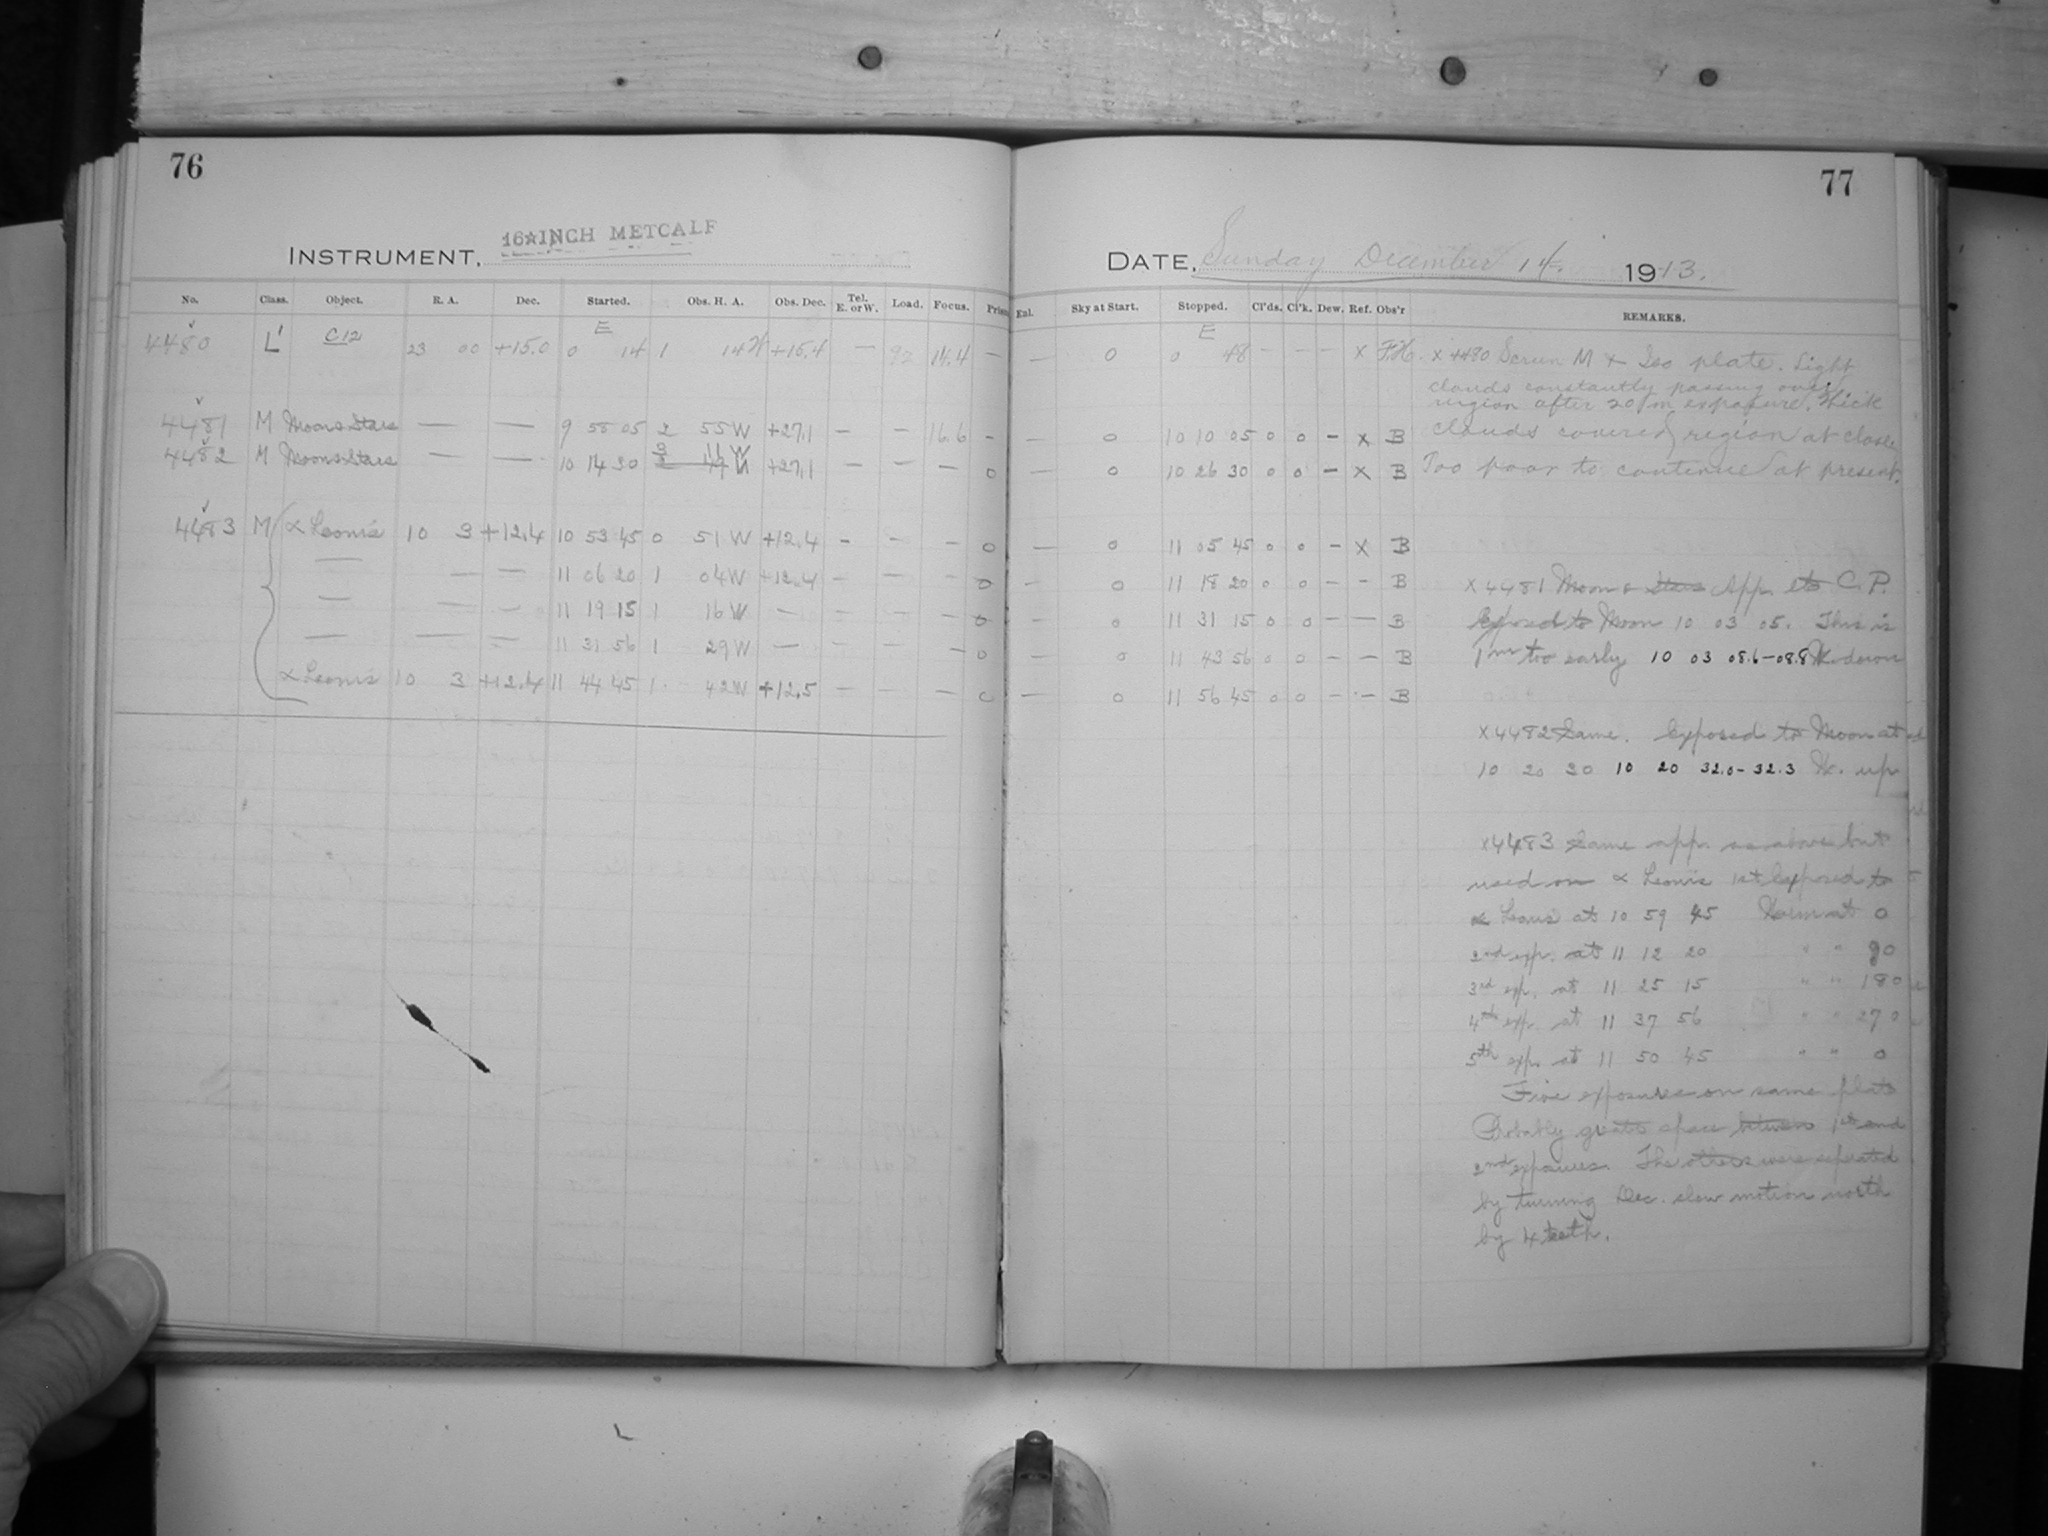 76
16 INCH METCALF
INSTRUMENT,
No. Class. Object. R. A. Dec. Started. Obs. H. A. Obs. Dec. Tel. E. or W. Load. Focus. Prism
E
4480 L' C12 23 00 +15.0 0 14 1 14 W +15.4 — 92 14.4 —
4481 M Moon & Stars — — 9 58 05 2 55 W +27.1 — — 16.6 -
4482 M Moon & Stars — — 10 14 30 3 11 W +27.1 — — — 0
4483 M α Leonis 10 3 +12.4 10 53 45 0 51 W +12.4 - — — 0
— — — 11 06 20 1 04 W +12.4 — — — 0
— — — 11 19 15 1 16 W — — — — 0
— — — 11 31 56 1 29 W — — — — 0
α Leonis 10 3 +12.4 11 44 45 1 42 W +12.5 — — — 0
77
DATE, Sunday December 14. 1913.
Eul. Sky at Start. Stopped. Cl'ds. Cl'k. Dew. Ref. Obs'r REMARKS.
E
— 0 0 48 - - - X F.H. X 4480 Screen M & Iso plate. Light
clouds constantly passing over
region after 20 m exposure. Thick
— 0 10 10 05 0 0 - X B clouds covered region at close
— 0 10 26 30 0 0 - X B Too poor to continue at present.
— 0 11 05 45 0 0 - X B
— 0 11 18 20 0 0 - - B X 4481 Moon & Stars App. C.P.
— 0 11 31 15 0 0 - — B Exposed to Moon 10 03 05. This is
— 0 11 43 56 0 0 - - B 1m too early 10 03 08.6—08.8
— 0 11 56 45 0 0 - - B
X 4482 Same. Exposed to Moon at
10 20 30 10 20 32.0-32.3 up
X 4483 Same app. as above but
used on α Leonis 1st Exposed to
α Leonis at 10 59 45 at 0
2nd exp. at 11 12 20 " " 90
3rd exp. at 11 25 15 " " 180
4th exp. at 11 37 56 " " 270
5th exp. at 11 50 45 " " 0
Five exposures on same plate
Probably space between 1st and
2nd exposures. The others were seperated
by turning Dec. slow motion north
by 4 teeth.